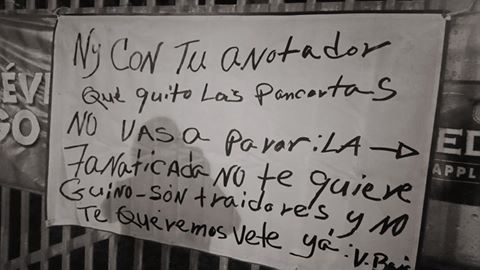 Ny CON Tu aNotador
Que quito Las Pancartas
NO VAS a Parar:LA →
FaNaticada NO te quiere
Guino-SON traidores y NO
Te Queremos Vete yá: V.
ÉVI
GO
ED
APPL